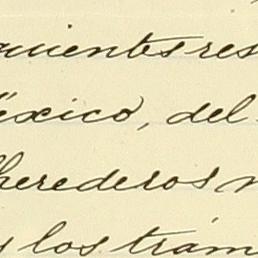 quientes res
México, del
herederos n
y los trám